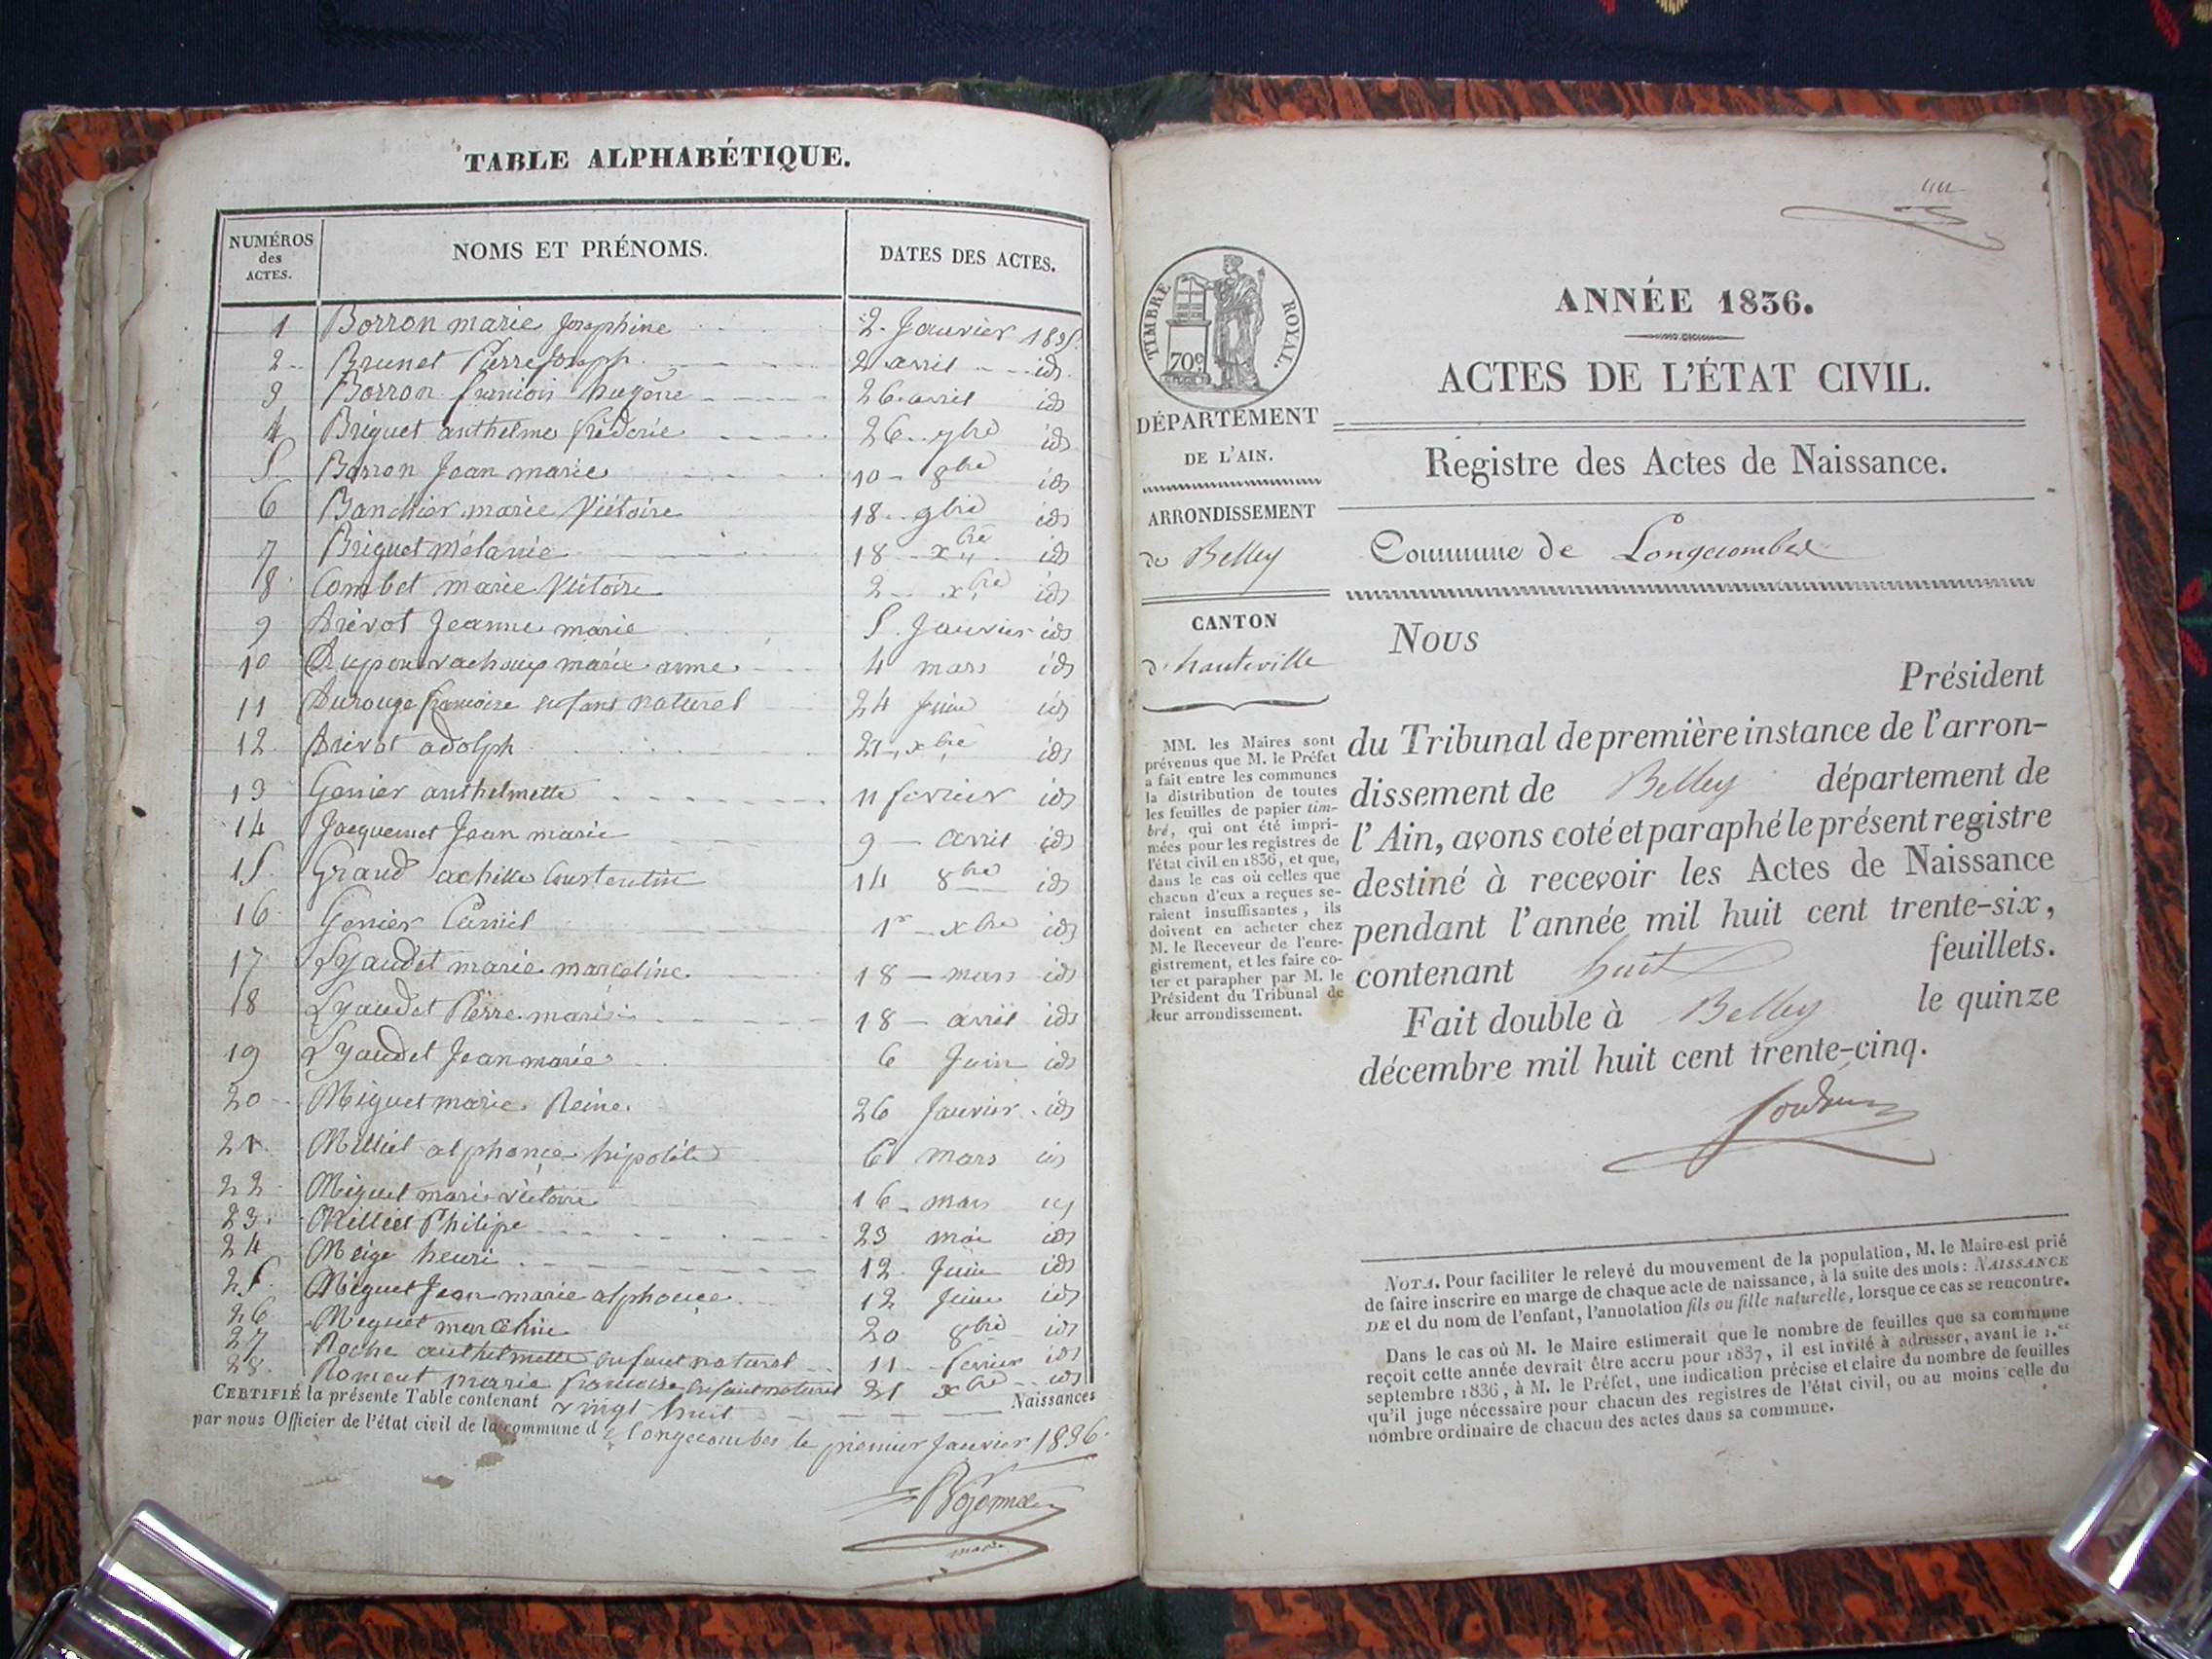 TABLE ALPHABÉTIQUE.
NUMÉROS des ACTES.
NOMS ET PRÉNOMS.
DATES DES ACTES.
1 Borron marie Josephine 2. Janvier 1835
2 Brunet Pierre Joseph 2 avril id
3 Borron francois hugène 26 avril id
4 Briguet anthelme fréderic 26 7bre id
5 Borron Jean marie 10 8bre id
6 Banchier marie Victoire 18 9bre id
7 Briguet mélanie 18 xbre id
8 Combet marie Victoire 2 xbre id
9 Drevot Jeanne marie 5. Janvier id
10 marie anne 4 mars id
11 Durouge francoise enfant naturel 24 Juin id
12 Drevot adolph 21 xbre id
13 Genier anthelmette 11 fevrier id
14 Jacquemet Jean marie 9 avril id
15 Grand achille Constentin 14 8bre id
16 Genier Camil 1er xbre id
17 Lyaudet marie marceline 18 mars id
18 Lyaudet Pierre marie 18 avril id
19 Lyaudet Jean marie 6 Juin id
20 Miguet marie Reine 26 Janvier id
21 Milliet alphonce hipolite 6 mars id
22 Miguet marie victoire 16 mars id
23 Milliet Philipe 23 mai id
24 Meige henri 12 Juin id
25 Miguet Jean marie alphonce 12 Juin id
26 Miguet marcelin 20 8bre id
27 Roche anthelmette enfant naturel 11 fevrier id
28 Romeut marie francoise enfant naturel 21 xbre id
CERTIFIÉ la présente Table contenant vingt huit Naissances
par nous Officier de l'état civil de la commune de Longecombe le premier Janvier 1836.
maire
TIMBRE ROYAL.
70c
DÉPARTEMENT
DE L'AIN.
ARRONDISSEMENT
de Belley
CANTON
d'hauteville
MM. les Maires sont
prévenus que M. le Préfet
a fait entre les communes
la distribution de toutes
les feuilles de papier tim-
bré, qui ont été impri-
mées pour les registres de
l'état civil en 1836, et que,
dans le cas où celles que
chacun d'eux a reçues se-
raient insuffisantes, ils
doivent en acheter chez
M. le Receveur de l'enre-
gistrement, et les faire co-
ter et parapher par M. le
Président du Tribunal de
leur arrondissement.
ANNÉE 1836.
ACTES DE L'ÉTAT CIVIL.
Registre des Actes de Naissance.
Commune de Longecombe
Nous
Président
du Tribunal de première instance de l'arron-
dissement de Belley département de
l'Ain, avons coté et paraphé le présent registre
destiné à recevoir les Actes de Naissance
pendant l'année mil huit cent trente-six,
contenant huit feuillets.
Fait double à Belley le quinze
décembre mil huit cent trente-cinq.
NOTA. Pour faciliter le relevé du mouvement de la population, M. le Maire est prié
de faire inscrire en marge de chaque acte de naissance, à la suite des mots: NAISSANCE
DE et du nom de l'enfant, l'annotation fils ou fille naturelle, lorsque ce cas se rencontre.
Dans le cas où M. le Maire estimerait que le nombre de feuilles que sa commune
reçoit cette année devrait être accru pour 1837, il est invité à adresser, avant le 1.er
septembre 1836, à M. le Préfet, une indication précise et claire du nombre de feuilles
qu'il juge nécessaire pour chacun des registres de l'état civil, ou au moins celle du
nombre ordinaire de chacun des actes dans sa commune.